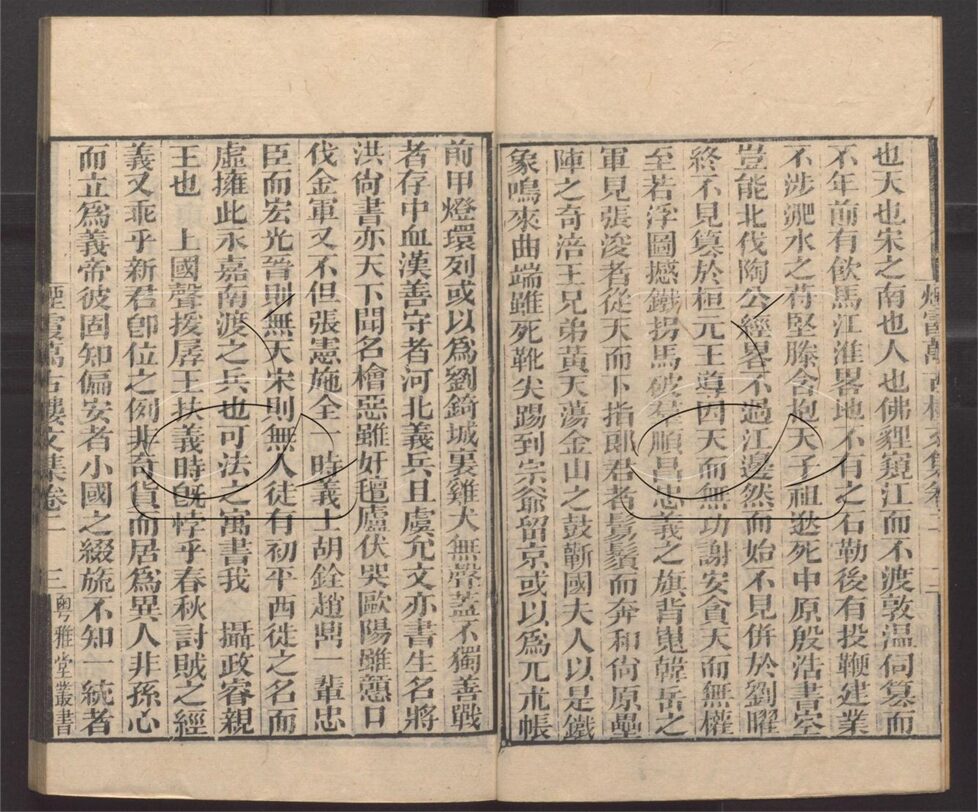 也天也宋之南也人也佛貍窺江而不渡敦溫伺篡而
不年前有飮馬江淮畧地不有之石勒後有投鞭建業
不涉淝水之苻堅滕含抱天子祖逖死中原殷浩書空
豈能北伐陶公經畧不過江邊然而始不見併於劉曜
終不見篡於桓元王導因天而無功謝安貪天而無權
至若浮圖撼鐵拐馬破 順昌忠義之旗背嵬韓岳之
軍見張浚者從天而下指郎君者鬍鬚而奔和尙原壘
陣之奇涪王兄弟黃天蕩金山之鼓蘄國夫人以是鐵
象鳴來曲端雖死靴尖踢到宗爺留京或以爲兀朮帳
前甲燈環列或以爲劉錡城裏雞犬無聲蓋不獨善戰
者存中血漢善守者河北義兵且虞允文亦書生名將
洪尙書亦天下聞名檜惡雖奸氊廬伏哭歐陽雖戇日
伐金軍又不但張憲施全一時義士胡銓趙鼎一輩忠
臣而宏光晉則無天宋則無人徒有初平西徙之名而
虛擁此永嘉南渡之兵也可法之寓書我 攝政睿親
王也 上國聲援孱王扶義時旣悖乎春秋討賊之經
義又乖乎新君卽位之例非奇貨而居爲異人非孫心
而立爲義帝彼固知偏安者小國之綴旒不知一統者
煙霞萬古樓文集卷二 三 粵雅堂叢書